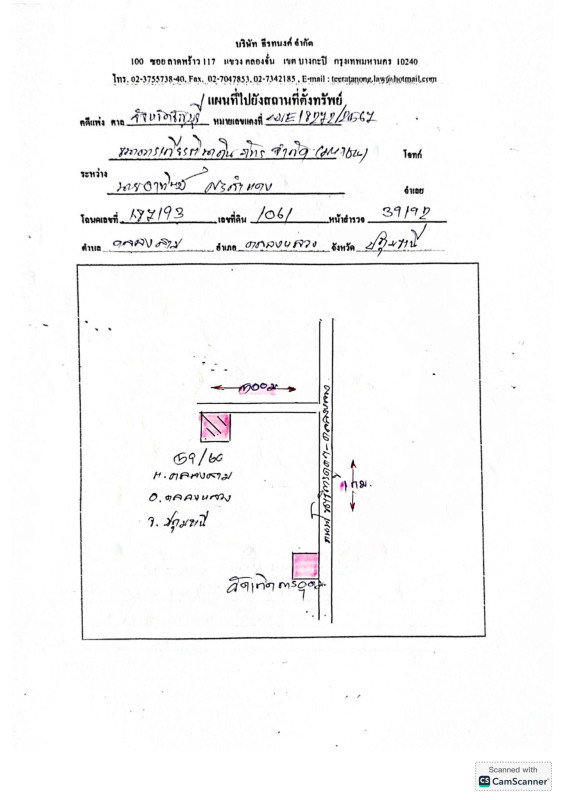 บริษัท ธีรทนงค์ จำกัด
100 ซอย ลาดพร้าว 117 แขวง คลองจั่น เขต บางกะปิ กรุงเทพมหานคร 10240
โทร. 02-3755738-40, Fax. 02-7047853, 02-7342185 , E-mail : teeratanong.law@hotmail.com
แผนที่ไปยังสถานที่ตั้งทรัพย์
คดีแพ่ง ศาล จังหวัดธัญบุรี หมายเลขแดงที่
ธนาคารเกียรตินาคิน ภัทร จำกัด (มหาชน) โจทก์
ระหว่าง
นายอาทิตย์ จำเลย
โฉนดเลขที่ เลขที่ดิน 1061 หน้าสำรวจ 39192
ตำบล คลองสาม อำเภอ คลองหลวง จังหวัด ปทุมธานี
200 ม
59/60
ต. คลองสาม
อ. คลองหลวง
จ. ปทุมธานี
1 กม.
วัดเกิดการอุดม
Scanned with
CS CamScanner